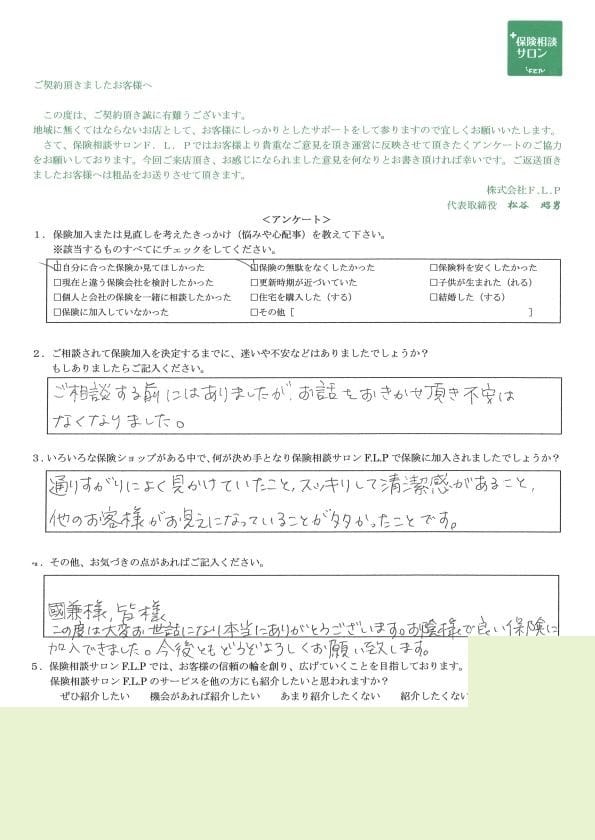 +保険相談
サロン
F.L.P
ご契約頂きましたお客様へ
この度は、ご契約頂き誠に有難うございます。
地域に無くてはならないお店として、お客様にしっかりとしたサポートをして参りますので宜しくお願いいたします。
さて、保険相談サロンF．L．Pではお客様より貴重なご意見を頂き運営に反映させて頂きたくアンケートのご協力
をお願いしております。今回ご来店頂き、お感じになられました意見を何なりとお書き頂ければ幸いです。ご返送頂き
ましたお客様へは粗品をお送りさせて頂きます。
株式会社F.L.P
代表取締役 松谷 昭男
＜アンケート＞
１．保険加入または見直しを考えたきっかけ（悩みや心配事）を教えて下さい。
※該当するものすべてにチェックをしてください。
☑自分に合った保険か見てほしかった ☑保険の無駄をなくしたかった □保険料を安くしたかった
□現在と違う保険会社を検討したかった □更新時期が近づいていた □子供が生まれた（れる）
□個人と会社の保険を一緒に相談したかった □住宅を購入した（する） □結婚した（する）
□保険に加入していなかった □その他［ ］
２．ご相談されて保険加入を決定するまでに、迷いや不安などはありましたでしょうか？
もしありましたらご記入ください。
ご相談する前にはありましたが、お話をおきかせ頂き不安は
なくなりました。
３．いろいろな保険ショップがある中で、何が決め手となり保険相談サロンF.L.Pで保険に加入されましたでしょうか？
通りすがりによく見かけていたこと、スッキリして清潔感があること、
他のお客様がお見えになっていることが多かったことです。
４．その他、お気づきの点があればご記入ください。
國兼様、皆様
この度は大変お世話になり本当にありがとうございます。お陰様で良い保険に
加入できました。今後ともどうぞよろしくお願い致します。
５．保険相談サロンF.L.Pでは、お客様の信頼の輪を創り、広げていくことを目指しております。
保険相談サロンF.L.Pのサービスを他の方にも紹介したいと思われますか？
ぜひ紹介したい 機会があれば紹介したい あまり紹介したくない 紹介したくない